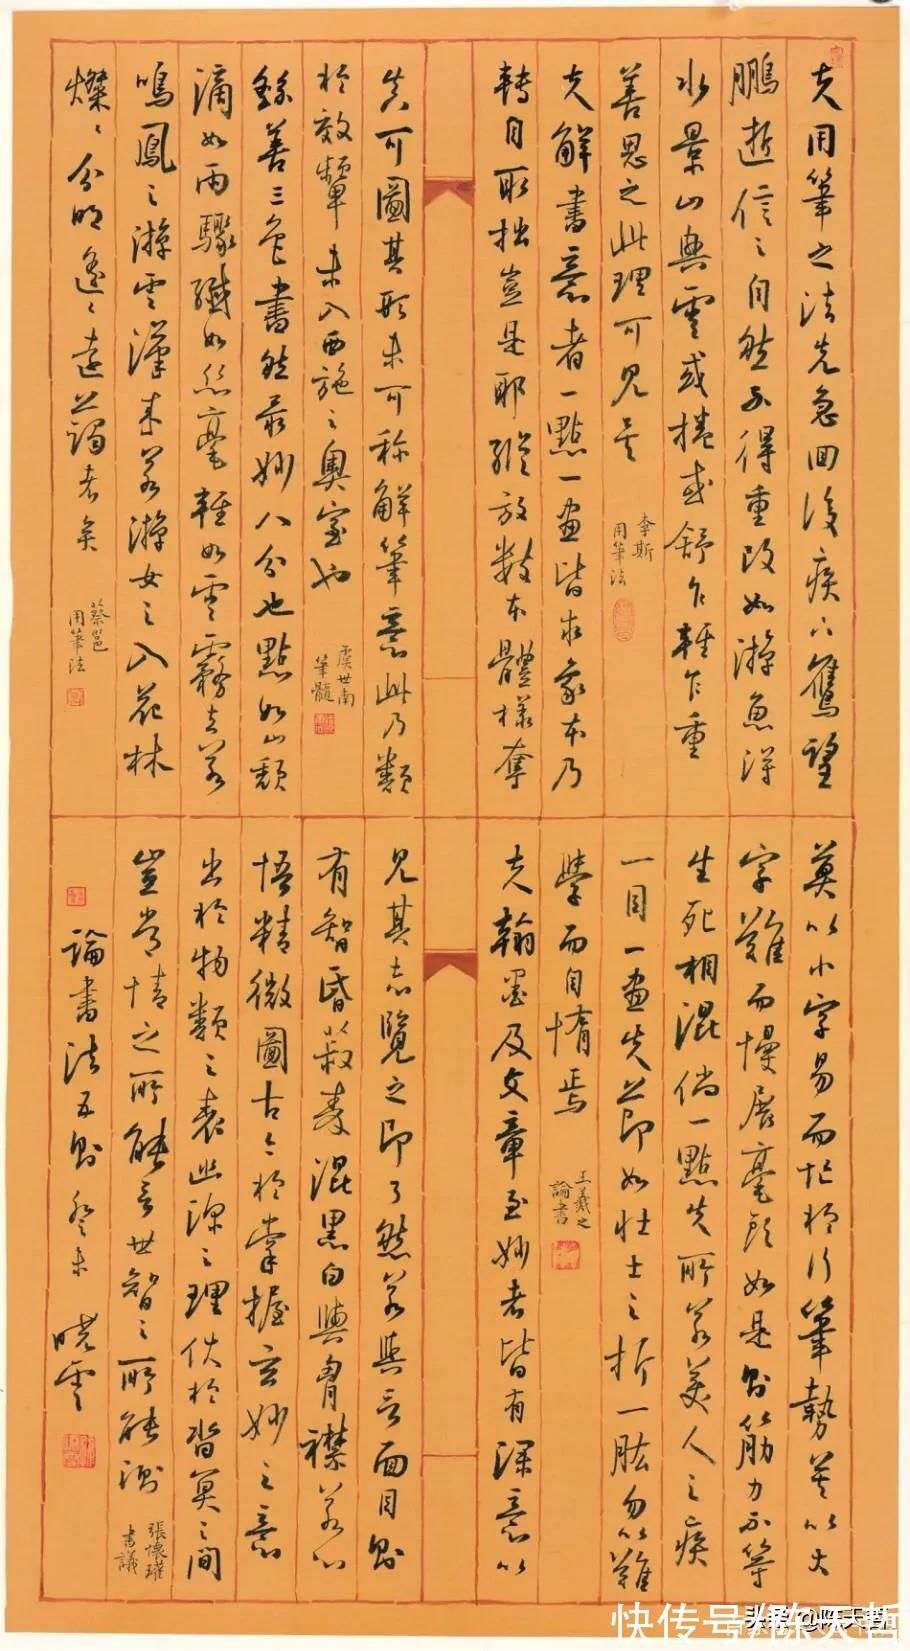 夫用筆之法先急回後疾下鷹望
鵬逝信之自然不得重改如游魚得
水景山興雲或捲或舒乍輕乍重
善思之此理可見矣
李斯
用筆法
夫解書意者一點一畫皆求象本乃
轉自取拙豈是耶縱放類本體樣奪
真可圖其形未可稱解筆意此乃類
於效顰未入西施之奧室也
虞世南
筆髓
繇善三色書然最妙八分也點如山頹
滴如雨驟纖如絲毫輕如雲霧去若
鳴鳳之游雲漢来若游女之入花林
燦燦分明遙遙遠薎者矣
蔡邕
用筆法
莫以小字易而忙於行筆勢莫以大
字難而慢展毫頭如是則筋力不等
生死相混倘一點失所若美人之疾
一目一畫失節如壯士之折一肱勿以難
學而自惰焉
王羲之
論書
夫翰墨及文章至妙者皆有深意以
見其志覽之即了然若與言面目則
有智昏菽麥混黑白與胷襟若心
悟精微圖古今於掌握玄妙之意
出於物類之表幽深之理伏於杳冥之間
豈常情之所能言世智之所能測
張懷瓘
書議
論書法五則癸未
曉雲
快传号/陈天哲